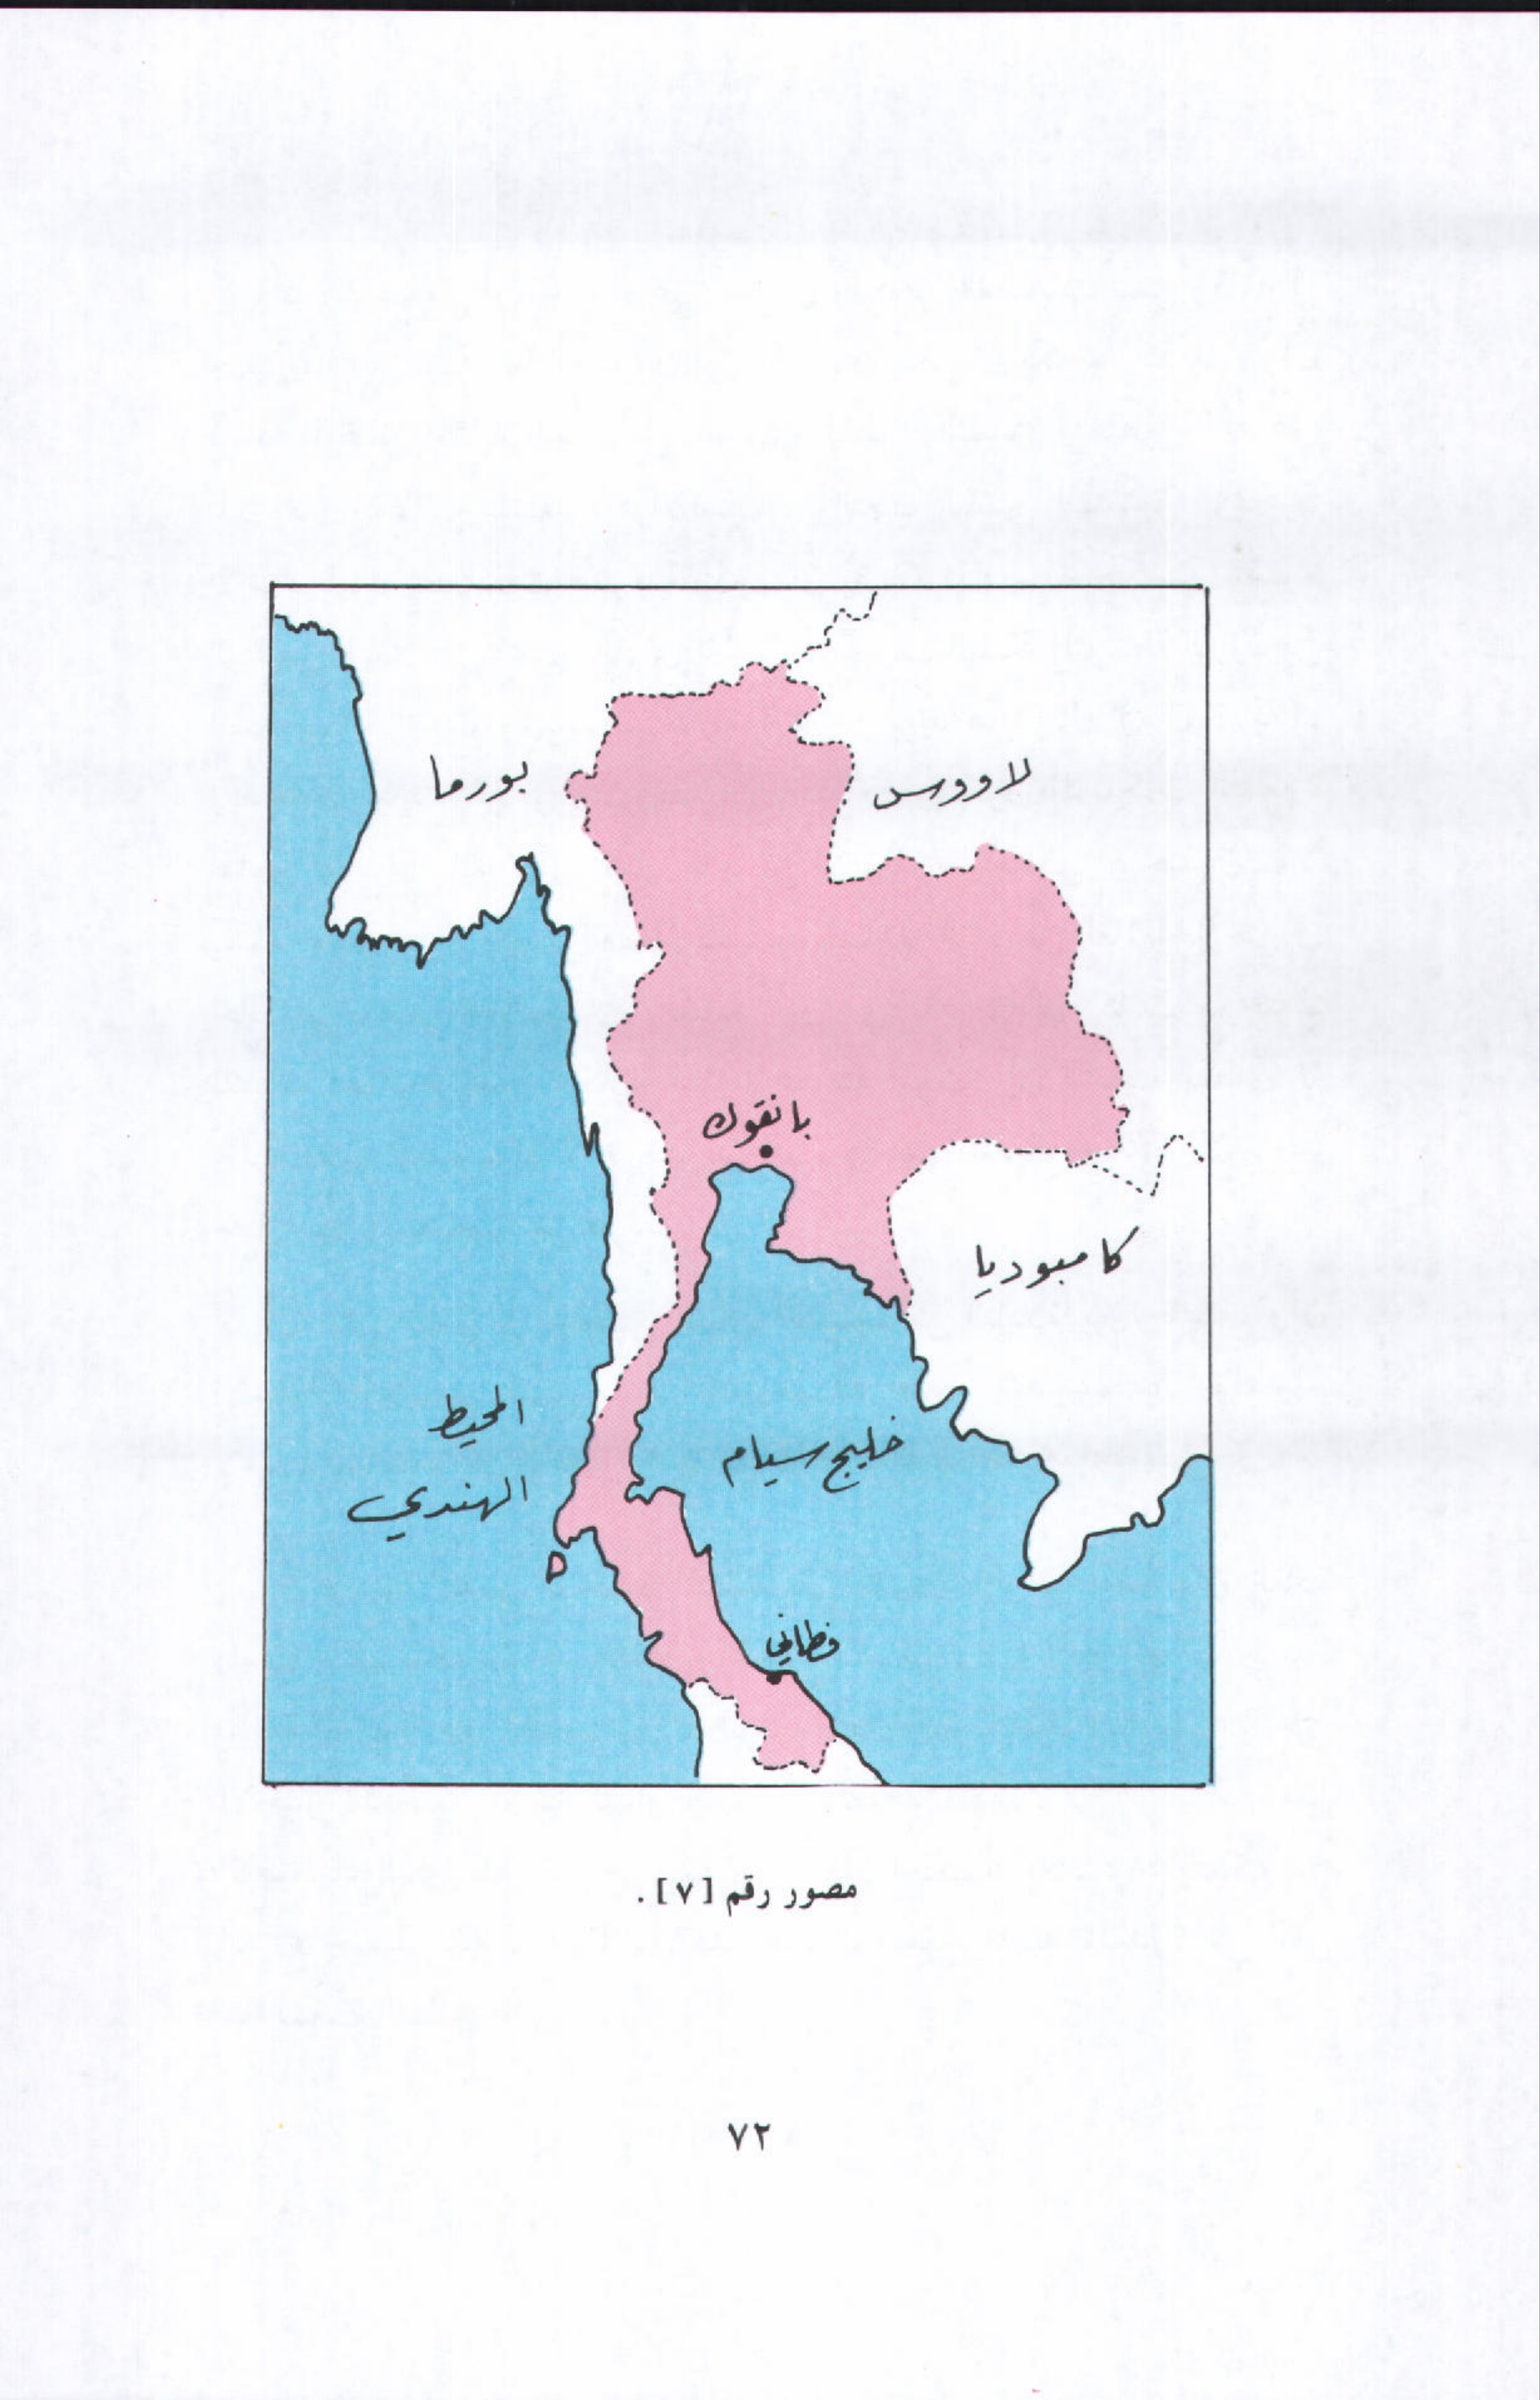 بورما
لاووس
بانقوك
كامبوديا
المحيط
الهندي
خليج سيام
فطاني
مصور رقم [٧].
٧٢